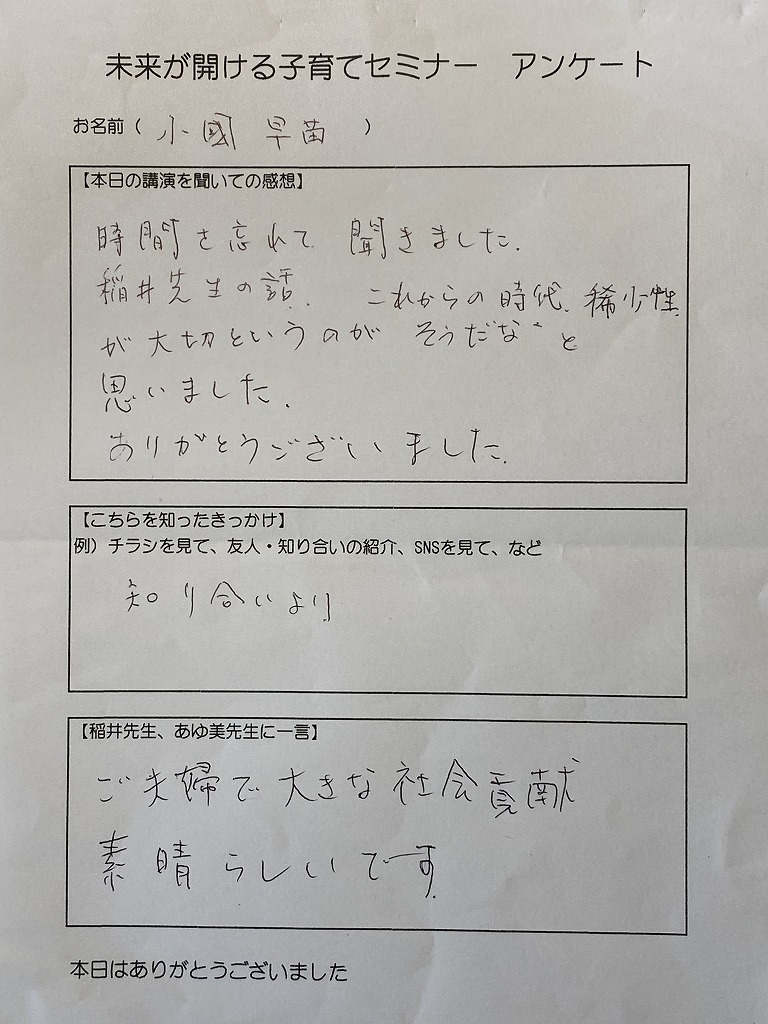 未来が開ける子育てセミナー　アンケート
お名前（ 小國 早苗 ）
【本日の講演を聞いての感想】
時間を忘れて 聞きました.
稲井先生の話. これからの時代、稀少性
が大切というのが そうだなぁと
思いました.
ありがとうございました.
【こちらを知ったきっかけ】
例）チラシを見て、友人・知り合いの紹介、SNSを見て、など
知り合いより
【稲井先生、あゆ美先生に一言】
ご夫婦で大きな社会貢献
素晴らしいです.
本日はありがとうございました